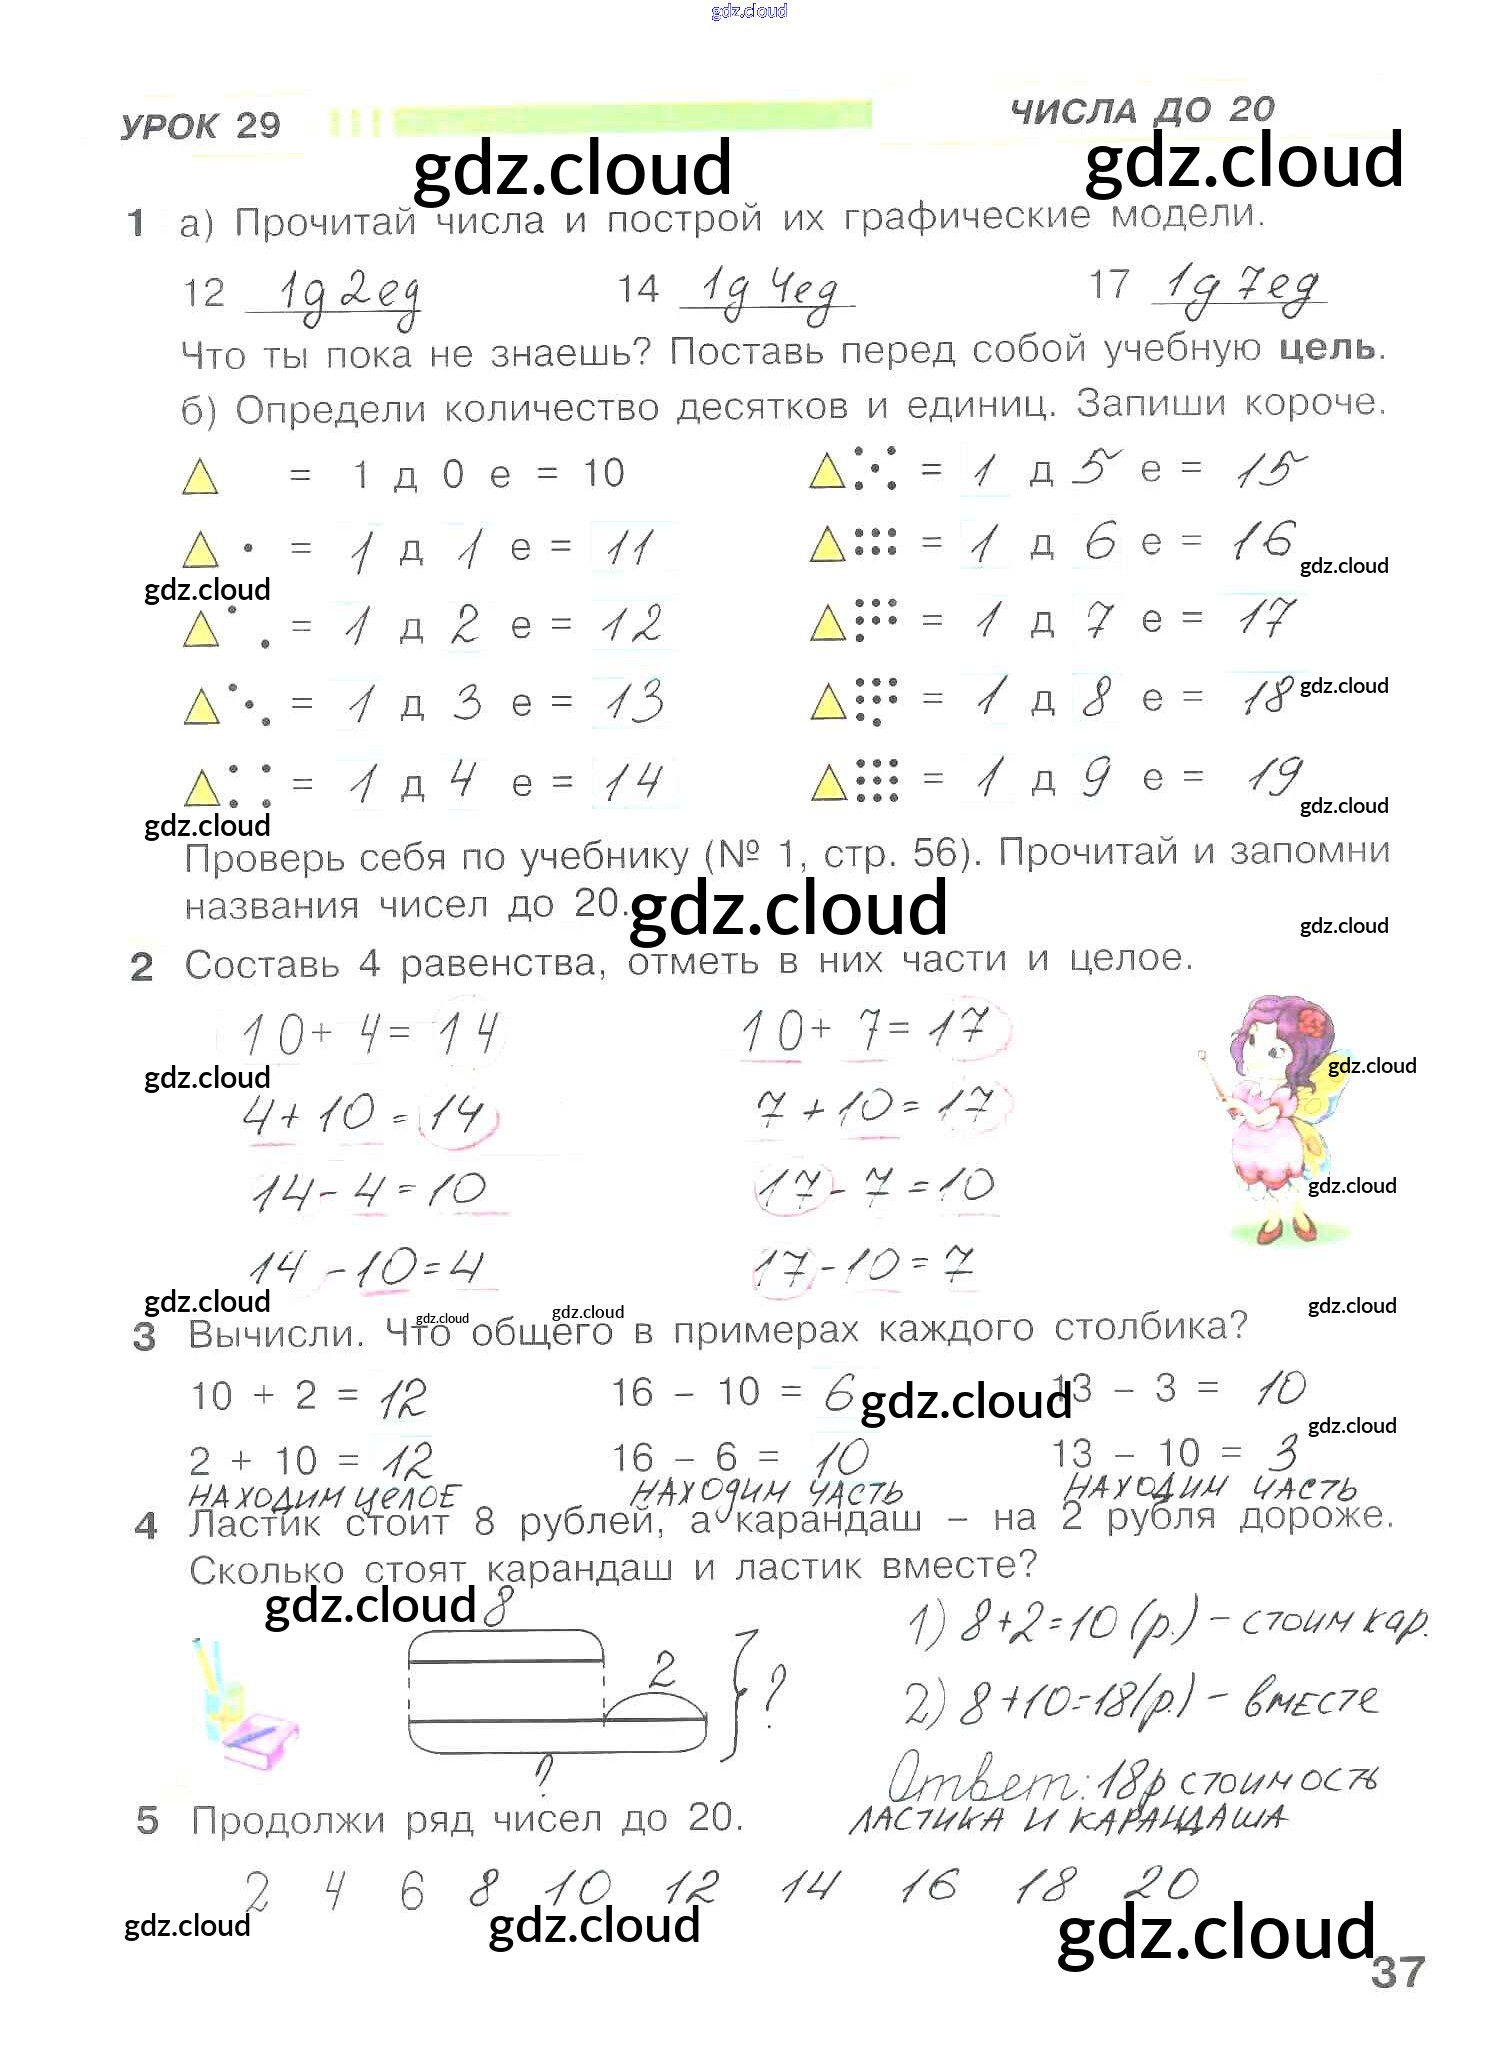 gdz.cloud
УРОК 29 ЧИСЛА ДО 20
gdz.cloud gdz.cloud
1 а) Прочитай числа и построй их графические модели.
12 1д 2ед 14 1д 4ед 17 1д 7ед
Что ты пока не знаешь? Поставь перед собой учебную цель.
б) Определи количество десятков и единиц. Запиши короче.
= 1 д 0 е = 10 = 1 д 5 е = 15
= 1 д 1 е = 11 = 1 д 6 е = 16
gdz.cloud gdz.cloud
= 1 д 2 е = 12 = 1 д 7 е = 17
= 1 д 3 е = 13 = 1 д 8 е = 18 gdz.cloud
= 1 д 4 е = 14 = 1 д 9 е = 19
gdz.cloud gdz.cloud
Проверь себя по учебнику (№ 1, стр. 56). Прочитай и запомни
названия чисел до 20. gdz.cloud gdz.cloud
2 Составь 4 равенства, отметь в них части и целое.
10 + 4 = 14 10 + 7 = 17
gdz.cloud gdz.cloud
4 + 10 = 14 7 + 10 = 17
14 - 4 = 10 17 - 7 = 10 gdz.cloud
14 - 10 = 4 17 - 10 = 7
gdz.cloud gdz.cloud gdz.cloud gdz.cloud
3 Вычисли. Что общего в примерах каждого столбика?
10 + 2 = 12 16 – 10 = 6 gdz.cloud 13 – 3 = 10
gdz.cloud
2 + 10 = 12 16 – 6 = 10 13 – 10 = 3
НАХОДИМ ЦЕЛОЕ НАХОДИМ ЧАСТЬ НАХОДИМ ЧАСТЬ
4 Ластик стоит 8 рублей, а карандаш – на 2 рубля дороже.
Сколько стоят карандаш и ластик вместе?
gdz.cloud 8
1) 8+2=10 (р.) – стоим кар.
2 ?
2) 8+10=18(р.) – вместе
?
Ответ: 18р стоимость
ластика и карандаша
5 Продолжи ряд чисел до 20.
2 4 6 8 10 12 14 16 18 20
gdz.cloud gdz.cloud gdz.cloud
37